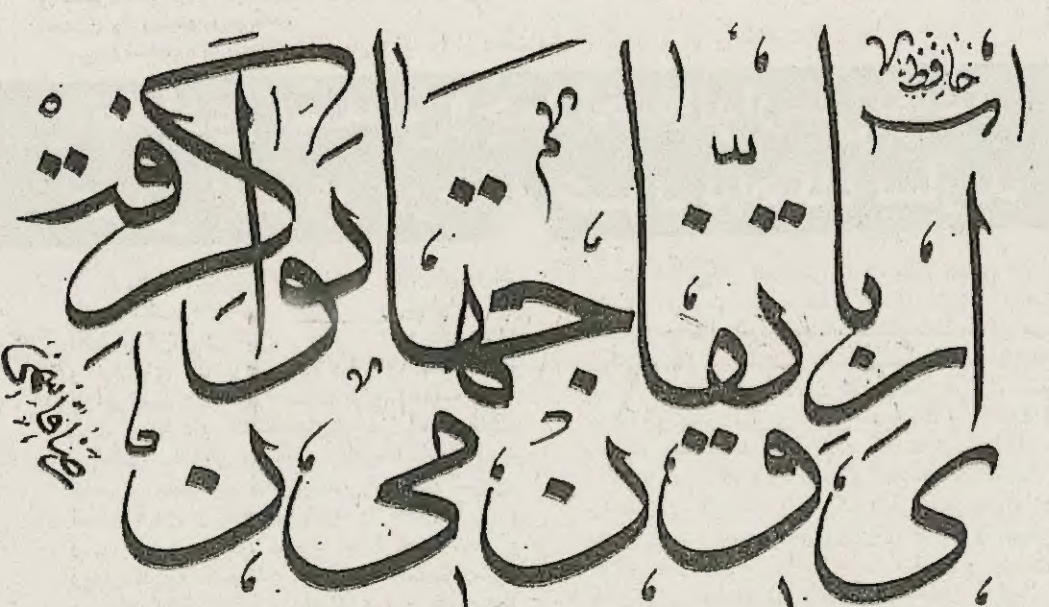 حافظ
آری باتفاق جهان می توان گرفت